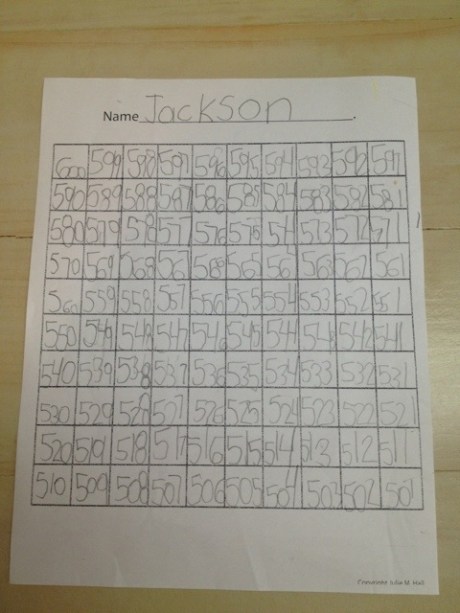 Name Jackson
600 599 598 597 596 595 594 593 592 591
590 589 588 587 586 585 584 583 582 581
580 579 578 577 576 575 574 573 572 571
570 569 568 567 566 565 564 563 562 561
560 559 558 557 556 555 554 553 552 551
550 549 548 547 546 545 544 543 542 541
540 539 538 537 536 535 534 533 532 531
530 529 528 527 526 525 524 523 522 521
520 519 518 517 516 515 514 513 512 511
510 509 508 507 506 505 504 503 502 501